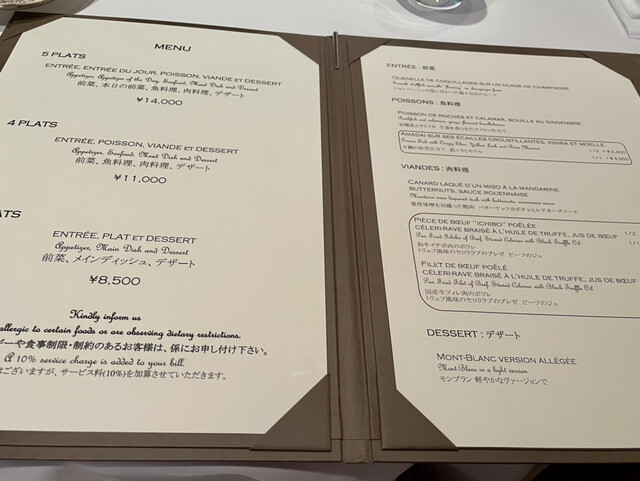 MENU
5 PLATS
ENTRÉE, ENTRÉE DU JOUR, POISSON, VIANDE ET DESSERT
Appetizer, Appetizer of the Day, Seafood, Meat Dish and Dessert
前菜、本日の前菜、魚料理、肉料理、デザート
¥14,000
4 PLATS
ENTRÉE, POISSON, VIANDE ET DESSERT
Appetizer, Seafood, Meat Dish and Dessert
前菜、魚料理、肉料理、デザート
¥11,000
ATS
ENTRÉE, PLAT ET DESSERT
Appetizer, Main Dish and Dessert
前菜、メインディッシュ、デザート
¥8,500
Kindly inform us
allergic to certain foods or are observing dietary restrictions.
ギーや食事制限・制約のあるお客様は、係にお申し付け下さい。
A 10% service charge is added to your bill.
はございますが、サービス料(10%)を加算させていただきます。
ENTRÉE : 前菜
QUENELLE DE COQUILLAGES SUR UN NUAGE DE CHAMPAGNE
POISSONS : 魚料理
POISSON DE ROCHES ET CALAMAR, BOUILLE AU GINGEMBRE
AMADAI SUR SES ÉCAILLES CROUSTILLANTES, KINIRA ET MOELLE
VIANDES : 肉料理
CANARD LAQUÉ D'UN MISO À LA MANDARINE
BUTTERNUTS, SAUCE ROUENNAISE
Mandarin miso lacquered duck with butternuts, rouennaise sauce
蜜柑味噌を羽織った鴨肉 バターナッツカボチャとルアネーズソース
PIÈCE DE BŒUF "ICHIBO" POÊLÉE 1/2
CÉLERI-RAVE BRAISÉ À L'HUILE DE TRUFFE, JUS DE BŒUF 1/1
Pan Fried Ichibo of Beef, Stewed Celeriac with Black Truffle Oil
和牛イチボ肉のポワレ
トリュフ風味のセロリラブのブレゼ ビーフのジュ
FILET DE BŒUF POÊLÉ
CÉLERI-RAVE BRAISÉ À L'HUILE DE TRUFFE, JUS DE BŒUF
Pan Fried Filet of Beef, Stewed Celeriac with Black Truffle Oil
国産牛フィレ肉のポワレ
トリュフ風味のセロリラブのブレゼ ビーフのジュ
DESSERT : デザート
MONT-BLANC VERSION ALLÉGÉE
Mont-Blanc in a light version
モンブラン 軽やかなヴァージョンで